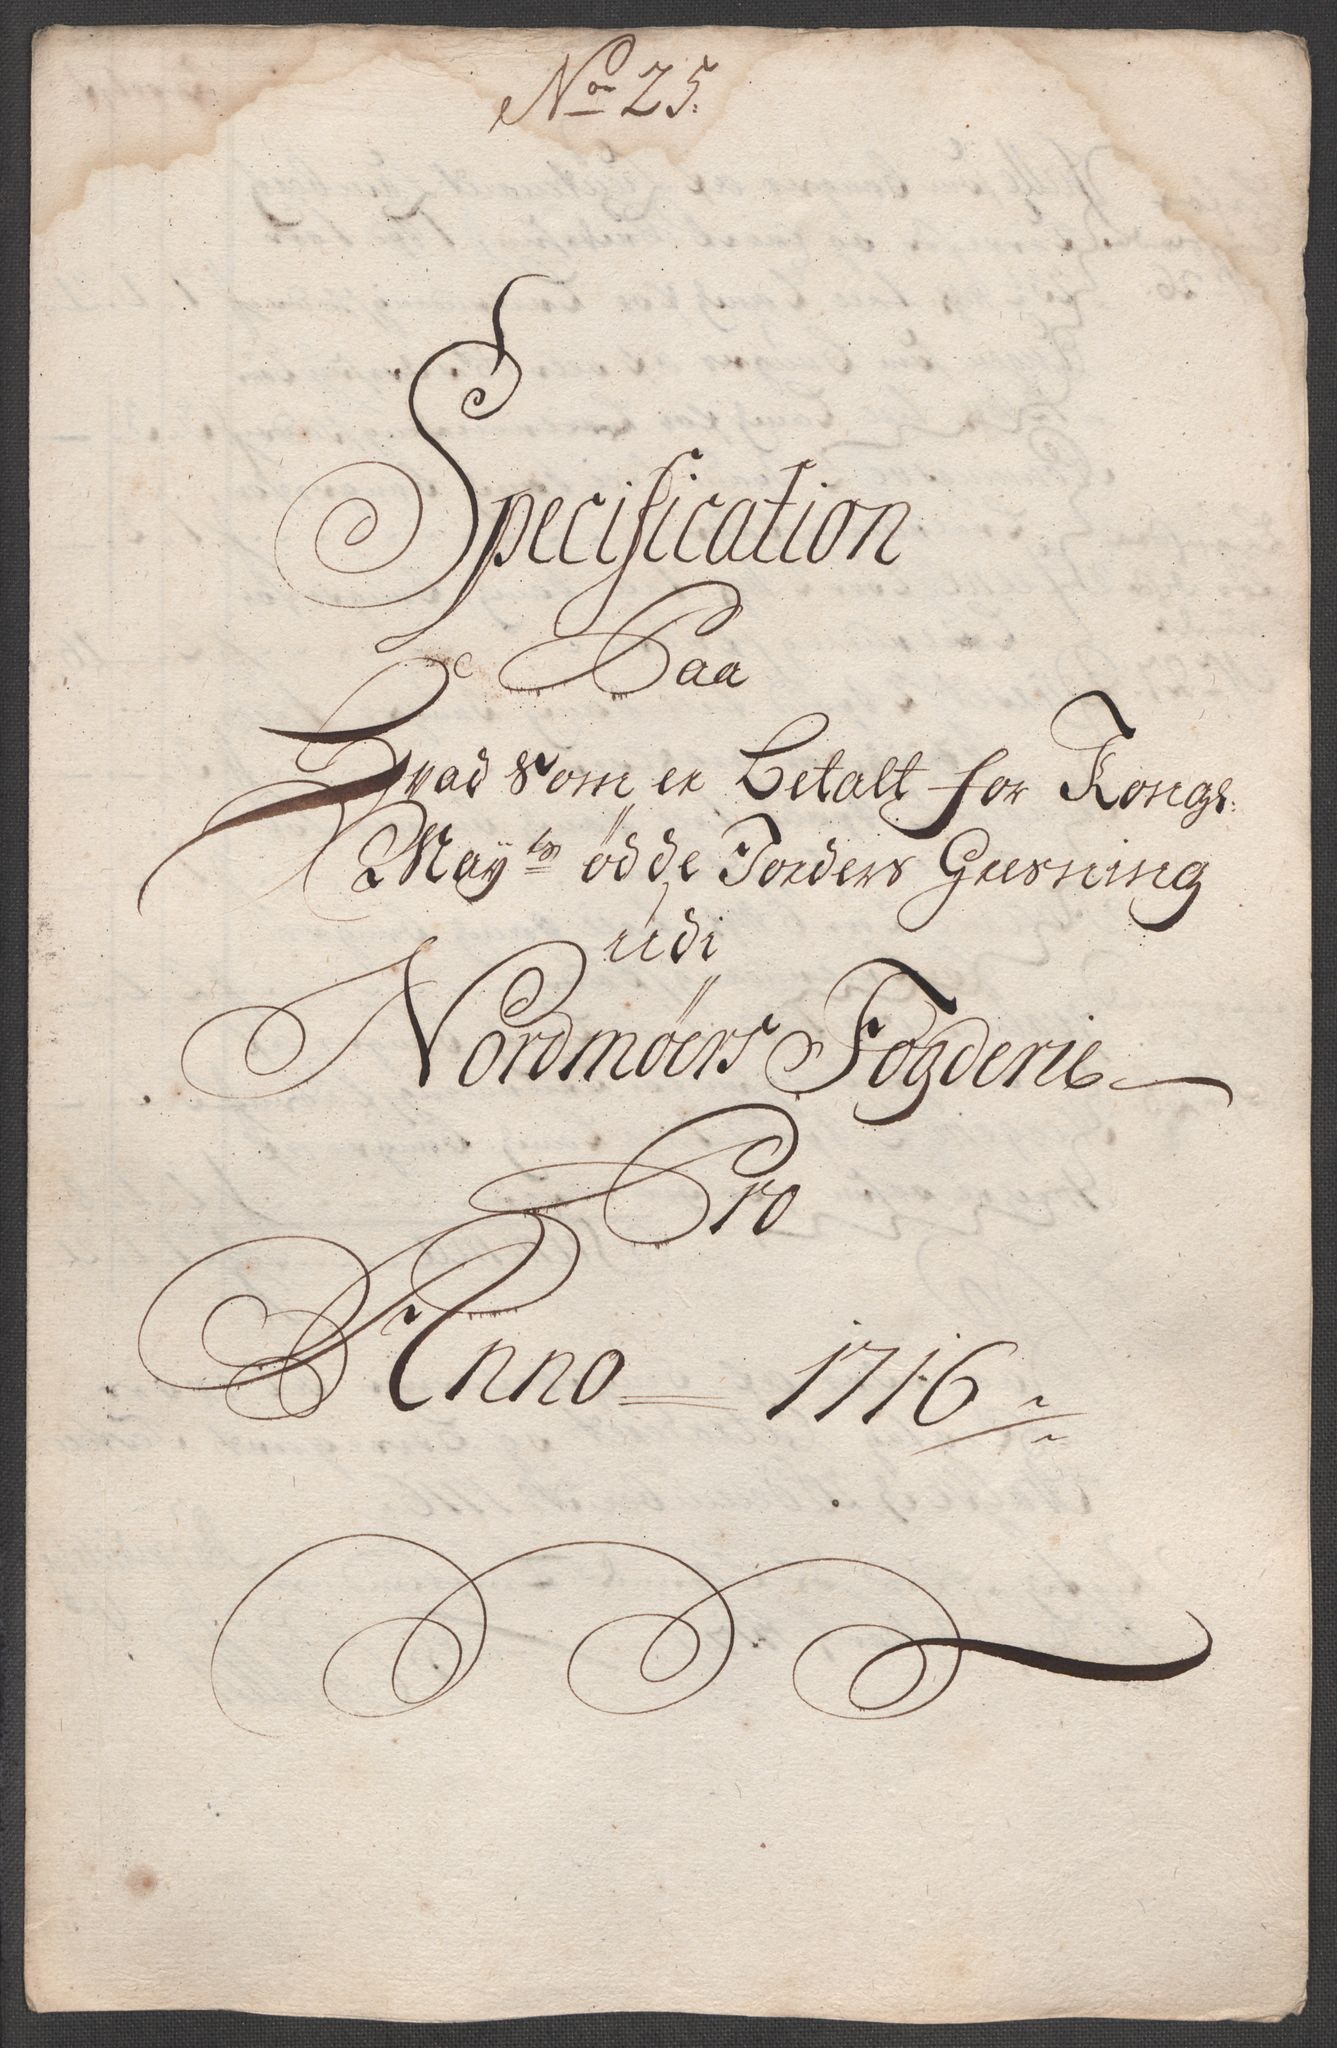 No 25.
Specification
Paa
Hvad som er Betalt for Kongl:
Mayts ødde Jorders Gresning
udi
Nordmøers Fogderie
Pro
Anno 1716